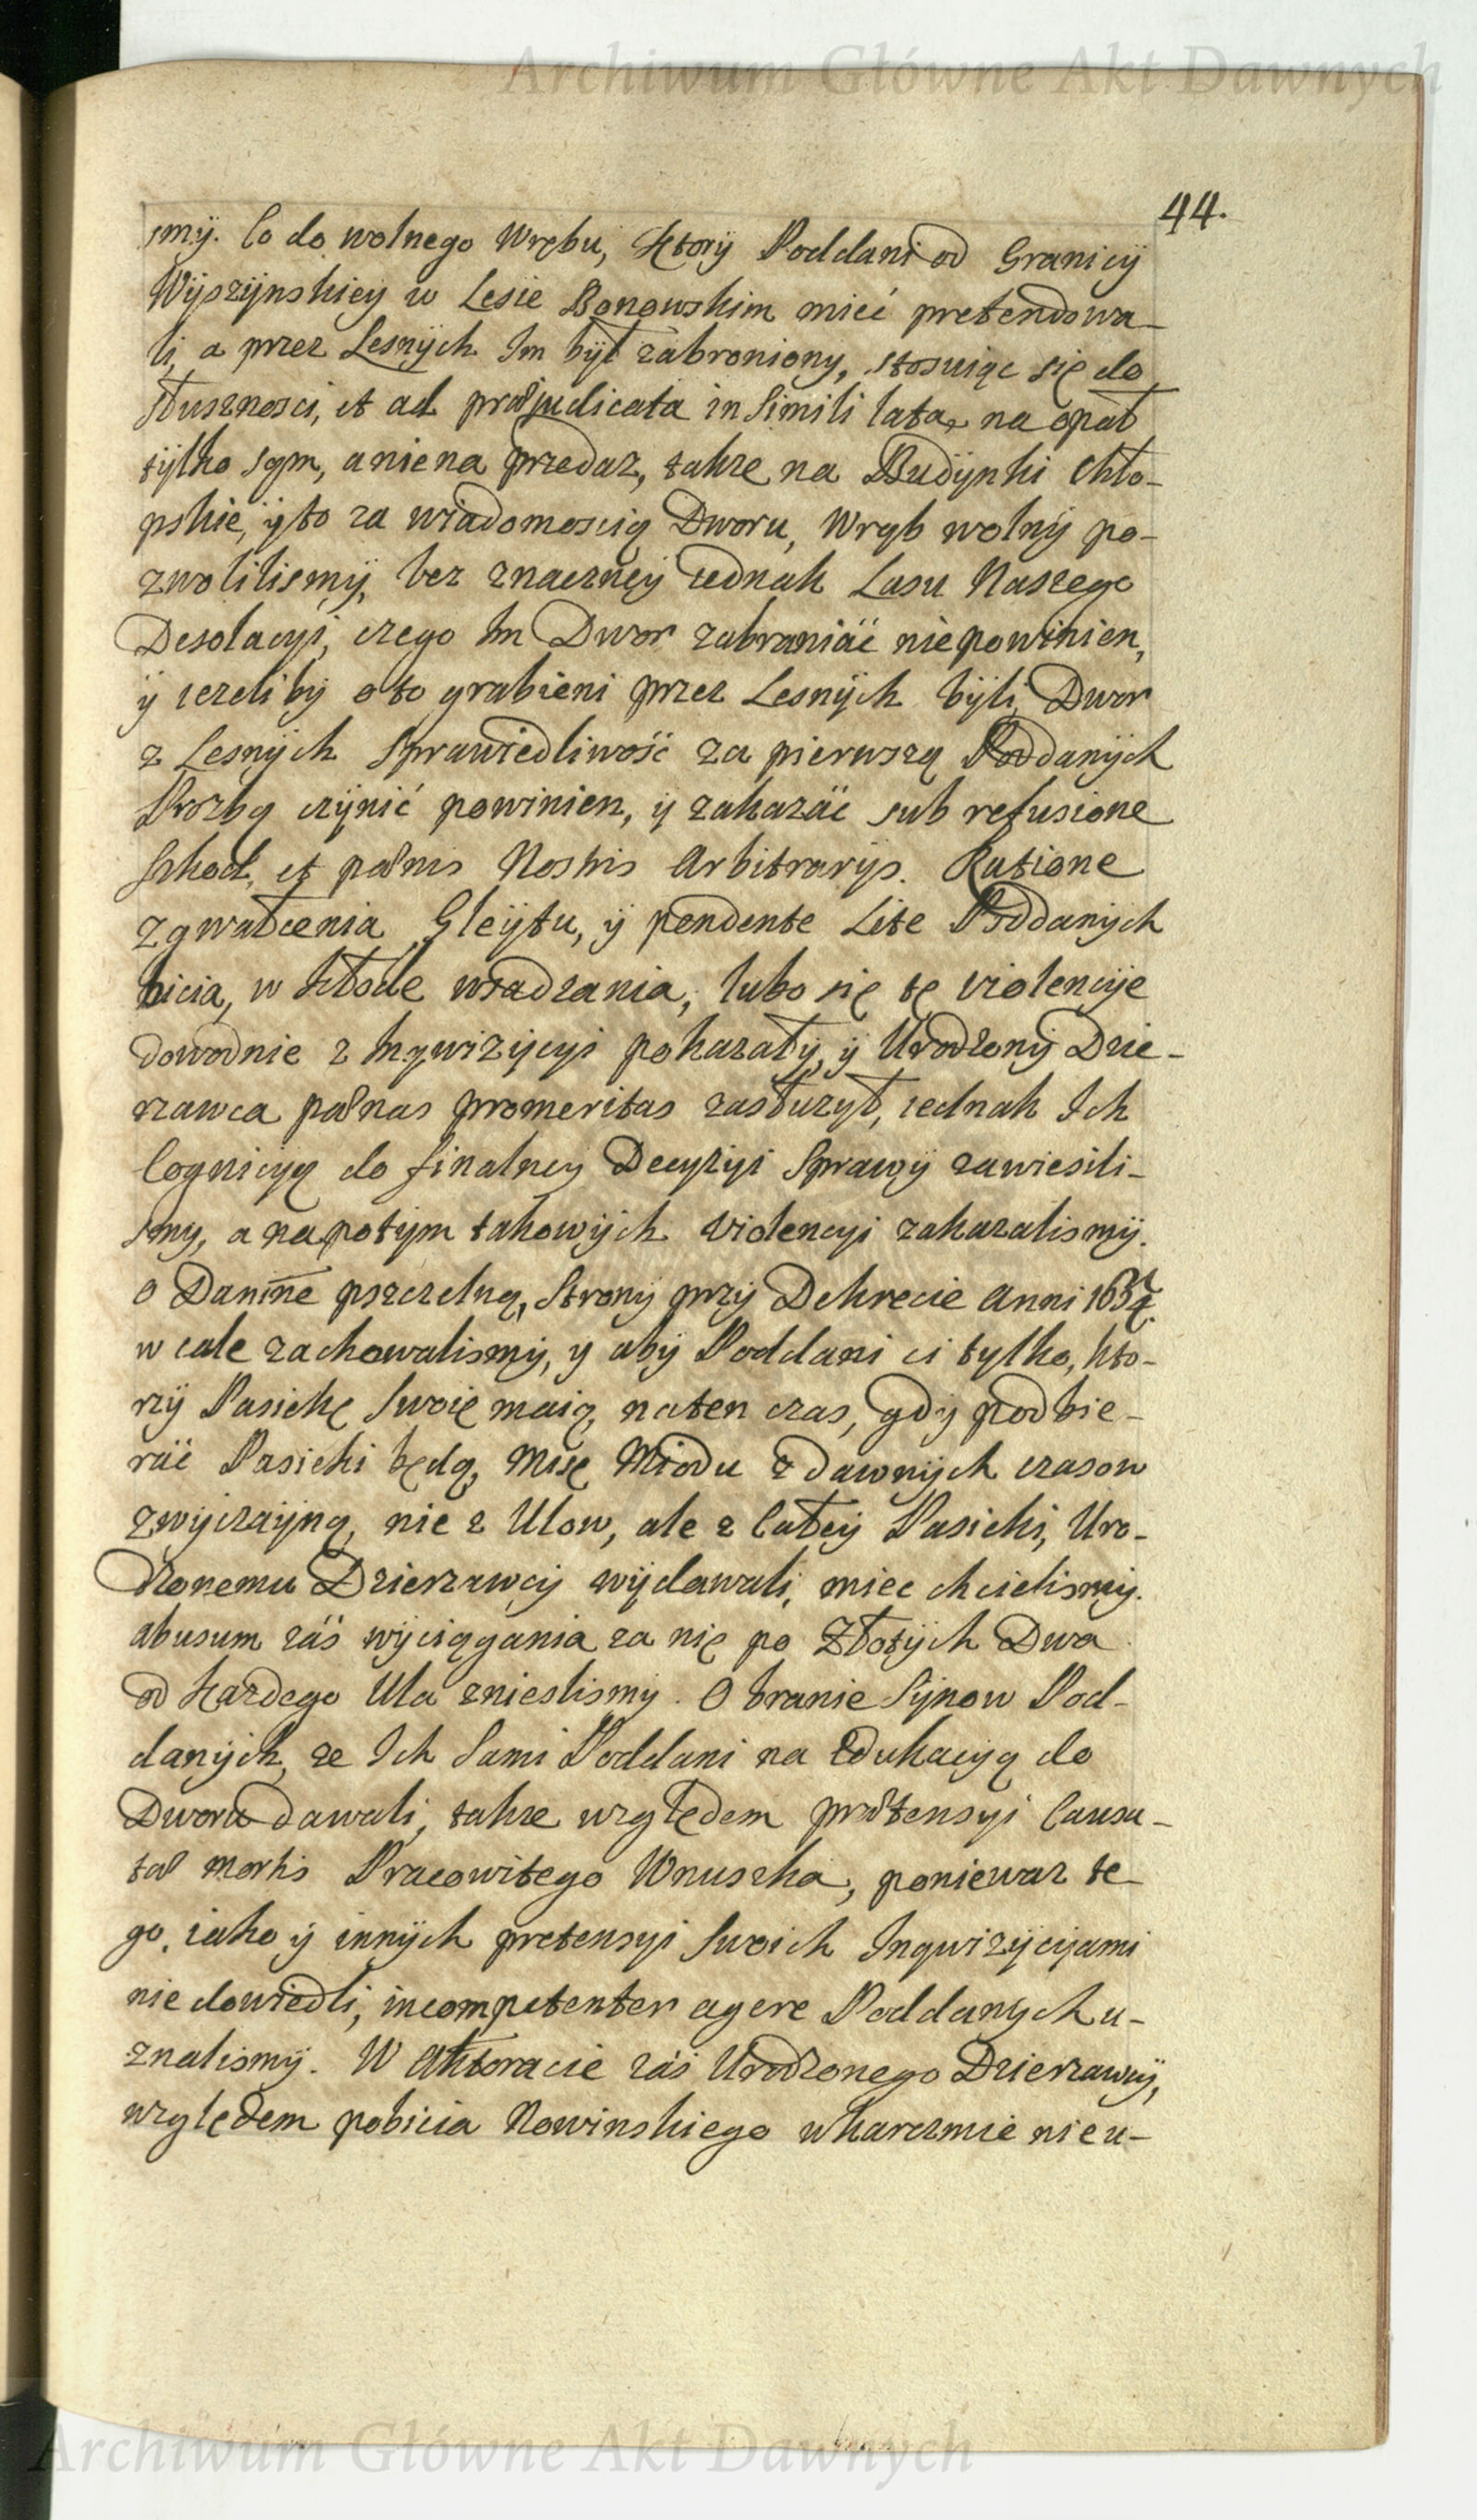 Archiwum Główne Akt Dawnych
44.
smÿ. Co do wolnego Wrębu, ktorÿ Poddani od Granicÿ
Wÿszÿnskiey w Lesie Bonowskim mieć pretendowa-
li, a przez Lesnÿch Im bÿł zabroniony, stosuiąc się do
słusznosci, et ad præjudicata in Simili lata, na opał
tÿlko sąm, a nie na przedaz, takze na Budÿnki Chło-
pskie, ÿ to za wiadomoscią Dworu, Wrąb wolnÿ po-
zwolilismÿ, bez znaczneÿ iednak Lasu Naszego
Desolacyi, czego Im Dwor zabraniać nie powinien,
ÿ iezeli bÿ o to grabieni przez Lesnÿch bÿli, Dwor
z Lesnÿch Sprawiedliwość za pierwszą Poddanÿch
Prozbą czÿnić powinien, ÿ zakazać sub refusione
Szkod, et pœnis Nostris Arbitrarÿs. Ratione
zgwałcenia Gleÿtu, ÿ pendente Lite Poddanÿch
bicia, w kłode wsadzania, lubo się te violencÿe
dowodnie z Inqwizÿcyi pokazałÿ, ÿ Urodzonÿ Dzie-
rzawca pœnas promeritas zasłuzył, iednak Ich
Cognicÿą do finalneÿ Decyzyi Sprawÿ zawiesili-
smy, a na potÿm takowÿch violencyi zakazalismÿ.
O Daninę pszczelną, Stronÿ przÿ Dekrecie Anni
w cale zachowalismÿ, y abÿ Poddani ci tylko, kto-
rzÿ Pasiekę Swoię maią, na ten czas, gdÿ podbie-
rać Pasieki będą, Misę Miodu z dawnÿch czasow
zwÿczaÿną, nie z Ulow, ale z Całeÿ Pasieki, Uro-
dzonemu Dzierzawcÿ wÿdawali, miec chcielismÿ.
abusum záś wÿciągania za nię po Złotÿch Dwa
od kazdego Ula znieslismy. O branie Sÿnow Pod-
danÿch, ze Ich Sami Poddani na Edukacyą do
Dworu dawali, takze względem prætensyi Causa-
tæ mortis Pracowitego Wnuszka, poniewaz te-
go, iako ÿ innÿch pretensyi Swoich Inqwizÿcÿami
nie dowiedli, incompetenter agere Poddanych u-
znalismÿ. W Aktoracie záś Urodzonego Dzierzawcÿ,
względem pobicia Nowinskiego w karczmie nie u-
Archiwum Główne Akt Dawnych